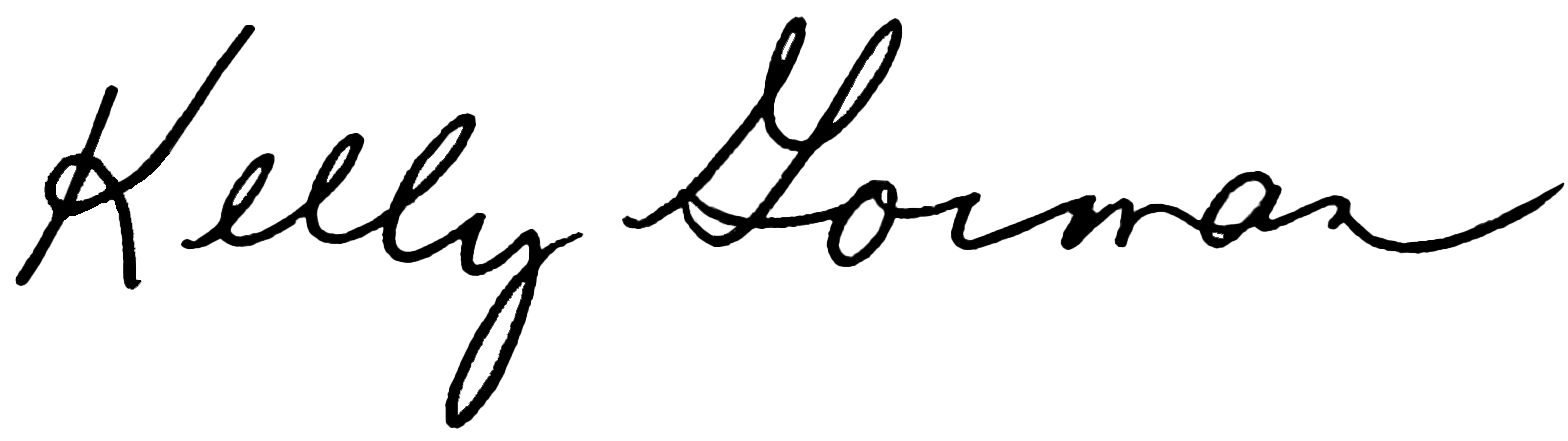 Kelly Gorman